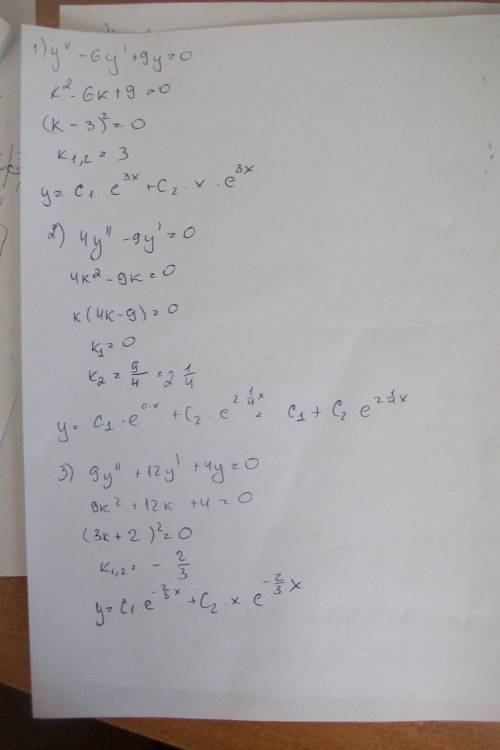 1) y'' - 6y' + 9y = 0
k² - 6k + 9 = 0
(k - 3)² = 0
k₁,₂ = 3
y = C₁ e^3x + C₂ · x · e^3x
2) 4y'' - 9y' = 0
4k² - 9k = 0
k(4k - 9) = 0
k₁ = 0
k₂ = 9/4 = 2 1/4
y = C₁ · e^0·x + C₂ · e^2 1/4 x = C₁ + C₂ · e^2 1/4 x
3) 9y'' + 12y' + 4y = 0
9k² + 12k + 4 = 0
(3k + 2)² = 0
k₁,₂ = - 2/3
y = C₁ · e^-2/3 x + C₂ · x · e^-2/3 x